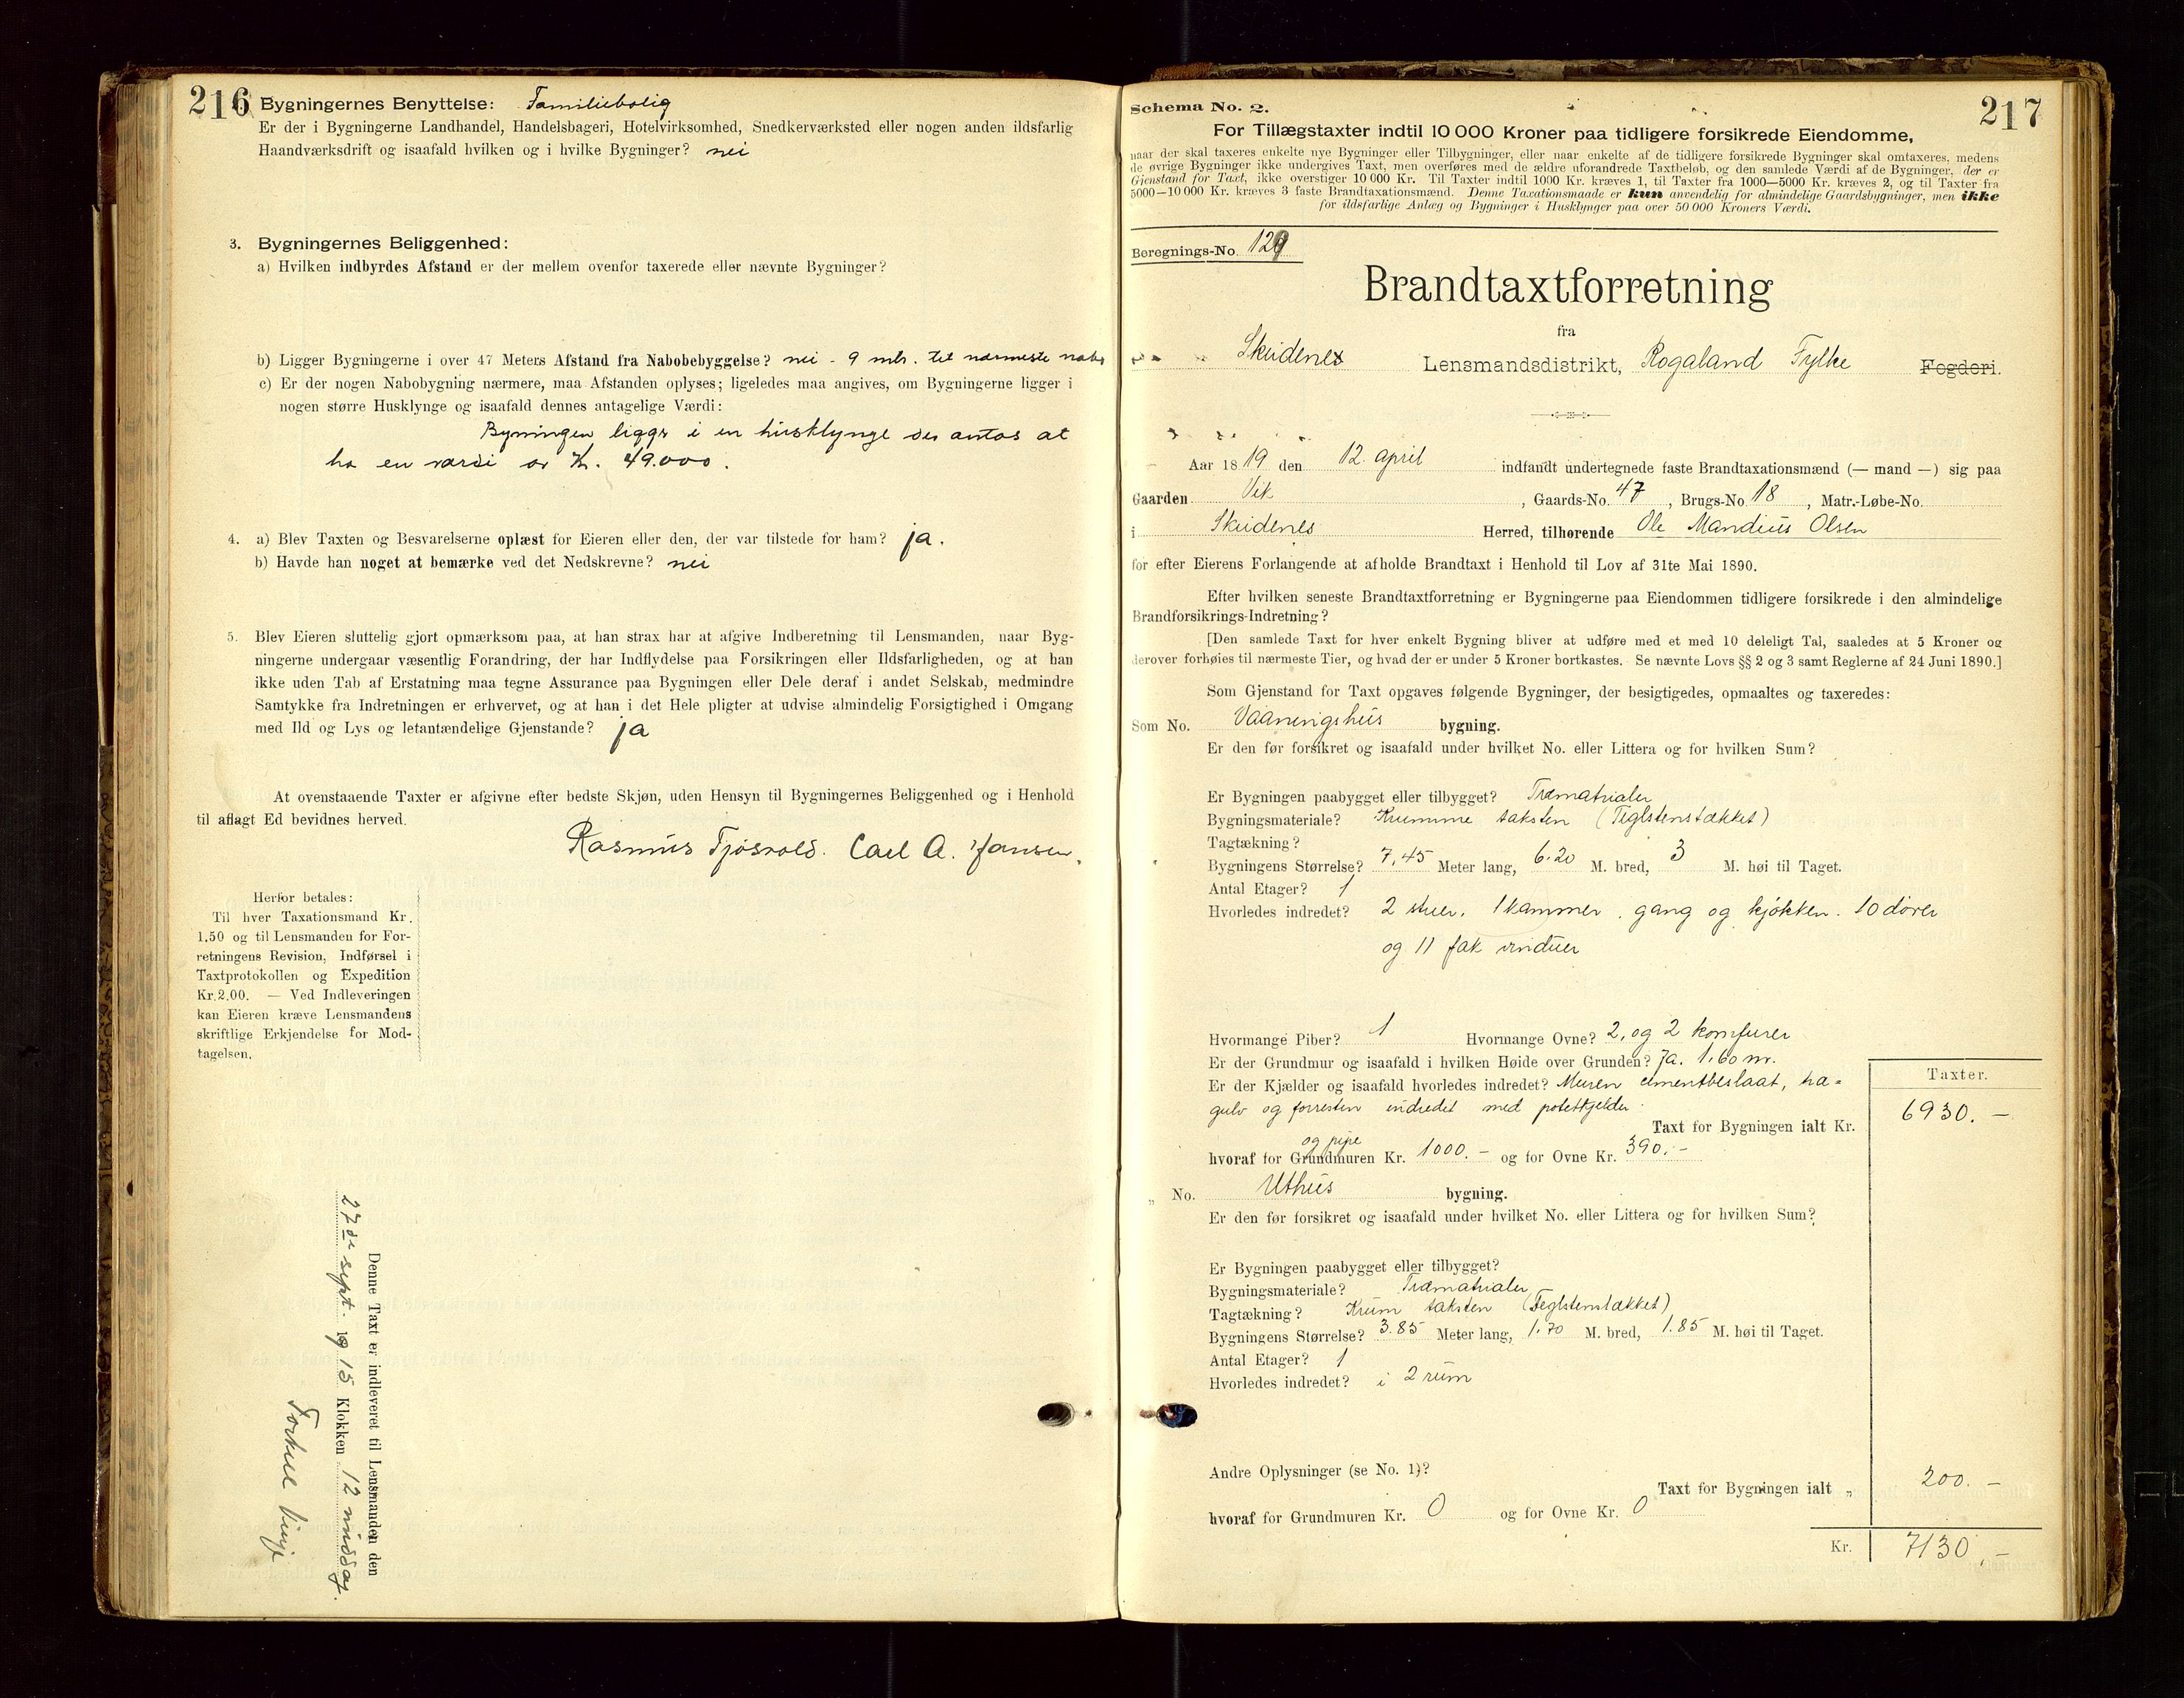 216
Bygningernes Benyttelse: Familiebolig
Er der i Bygningerne Landhandel, Handelsbageri, Hotelvirksomhed, Snedkerværksted eller nogen anden ildsfarlig
Haandværksdrift og isaafald hvilken og i hvilke Bygninger? nei
3. Bygningernes Beliggenhed:
a) Hvilken indbyrdes Afstand er der mellem ovenfor taxerede eller nævnte Bygninger?
b) Ligger Bygningerne i over 47 Meters Afstand fra Nabobebyggelse? nei - 9 mtr. til nærmeste nabo
c) Er der nogen Nabobygning nærmere, maa Afstanden oplyses; ligeledes maa angives, om Bygningerne ligger i
nogen større Husklynge og isaafald dennes antagelige Værdi:
Bymingen liggr i en husklynge der antas at
ha en værdi av Kr. 49.000.
4. a) Blev Taxten og Besvarelserne oplæst for Eieren eller den, der var tilstede for ham? ja.
b) Havde han noget at bemærke ved det Nedskrevne? nei
5. Blev Eieren sluttelig gjort opmærksom paa, at han strax har at afgive Indberetning til Lensmanden, naar Byg-
ningerne undergaar væsentlig Forandring, der har Indflydelse paa Forsikringen eller Ildsfarligheden, og at han
ikke uden Tab af Erstatning maa tegne Assurance paa Bygningen eller Dele deraf i andet Selskab, medmindre
Samtykke fra Indretningen er erhvervet, og at han i det Hele pligter at udvise almindelig Forsigtighed i Omgang
med Ild og Lys og letantændelige Gjenstande? ja
At ovenstaaende Taxter er afgivne efter bedste Skjøn, uden Hensyn til Bygningernes Beliggenhed og i Henhold
til aflagt Ed bevidnes herved.
Rasmus Tjösvold. Carl A. Jansen.
Herfor betales:
Til hver Taxationsmand Kr.
1,50 og til Lensmanden for For-
retningens Revision, Indførsel i
Taxtprotokollen og Expedition
Kr.2.00. — Ved Indleveringen
kan Eieren kræve Lensmandens
skriftlige Erkjendelse for Mod-
tagelsen.
Denne Taxt er indleveret til Lensmanden den
27de sept. 1915 Klokken 12 middag.
Torkell Vinje
217
Schema No. 2.
For Tillægstaxter indtil 10 000 Kroner paa tidligere forsikrede Eiendomme,
naar der skal taxeres enkelte nye Bygninger eller Tilbygninger, eller naar enkelte af de tidligere forsikrede Bygninger skal omtaxeres, medens
de øvrige Bygninger ikke undergives Taxt, men overføres med de ældre uforandrede Taxtbeløb, og den samlede Værdi af de Bygninger, der er
Gjenstand for Taxt, ikke overstiger 10 000 Kr. Til Taxter indtil 1000 Kr. kræves 1, til Taxter fra 1000—5000 Kr. kræves 2, og til Taxter fra
5000—10 000 Kr. kræves 3 faste Brandtaxationsmænd. Denne Taxationsmaade er kun anvendelig for almindelige Gaardsbygninger, men ikke
for ildsfarlige Anlæg og Bygninger i Husklynger paa over 50 000 Kroners Værdi.
Beregnings-No. 129
Brandtaxtforretning
fra
Skudenes Lensmandsdistrikt, Rogaland Fylke Fogderi.
Aar 1819 den 12. april indfandt undertegnede faste Brandtaxationsmænd (— mand —) sig paa
Gaarden Vik, Gaards-No. 47, Brugs-No 18, Matr.-Løbe-No.
i Skudenes Herred, tilhørende Ole Mandius Olsen
for efter Eierens Forlangende at afholde Brandtaxt i Henhold til Lov af 31te Mai 1890.
Efter hvilken seneste Brandtaxtforretning er Bygningerne paa Eiendommen tidligere forsikrede i den almindelige
Brandforsikrings-Indretning?
[Den samlede Taxt for hver enkelt Bygning bliver at udføre med et med 10 deleligt Tal, saaledes at 5 Kroner og
derover forhøies til nærmeste Tier, og hvad der er under 5 Kroner bortkastes. Se nævnte Lovs §§ 2 og 3 samt Reglerne af 24 Juni 1890.]
Som Gjenstand for Taxt opgaves følgende Bygninger, der besigtigedes, opmaaltes og taxeredes:
Som No. Vaaningshus bygning.
Er den før forsikret og isaafald under hvilket No. eller Littera og for hvilken Sum?
Er Bygningen paabygget eller tilbygget? Træmatrialer
Bygningsmateriale? Krumme taksten (Teglstenstækket)
Tagtækning?
Bygningens Størrelse? 7,45 Meter lang, 6.20 M. bred, 3 M. høi til Taget.
Antal Etager? 1
Hvorledes indredet? 2 stuer, 1 kammer, gang og kjøkken. 10 dører
og 11 fak vinduer
Hvormange Piber? 1 Hvormange Ovne? 2, og 2 komfurer
Er der Grundmur og isaafald i hvilken Høide over Grunden? Ja. 1,60 m.
Er der Kjælder og isaafald hvorledes indredet? Muren cementbeslaat, ha-
gulv og forresten indredet med potetkjelder.
Taxter.
Taxt for Bygningen ialt Kr. 6930.—
og pipe
hvoraf for Grundmuren Kr. 1000.— og for Ovne Kr. 390.—
„ No. Uthus bygning.
Er den før forsikret og isaafald under hvilket No. eller Littera og for hvilken Sum?
Er Bygningen paabygget eller tilbygget?
Bygningsmateriale? Træmatrialer
Tagtækning? Krum taksten (Teglstenstækket)
Bygningens Størrelse? 3.85 Meter lang, 1.70 M. bred, 1.85 M. høi til Taget.
Antal Etager? 1
Hvorledes indredet? i 2 rum
Andre Oplysninger (se No. 1)?
Taxt for Bygningen ialt „ 200.—
hvoraf for Grundmuren Kr. 0 og for Ovne Kr. 0
Kr. 7130.—